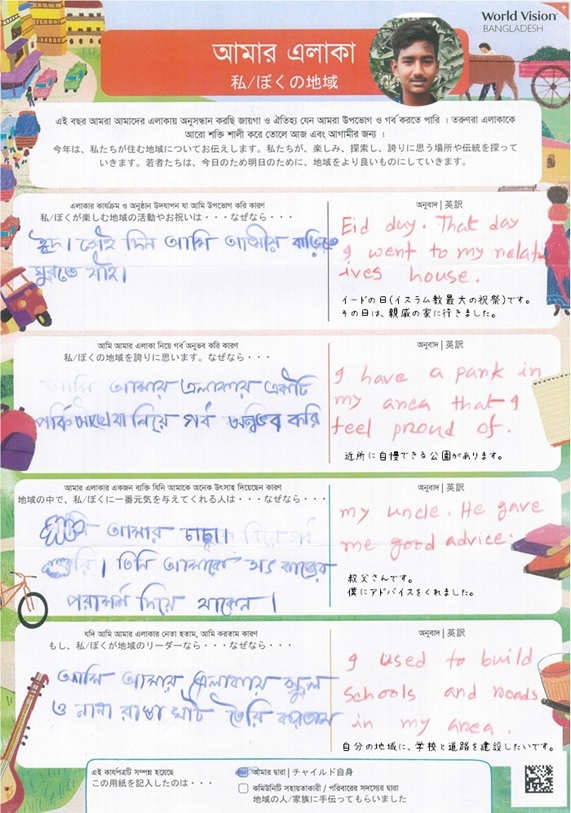 World Vision
BANGLADESH
আমার এলাকা
私/ぼくの地域
এই বছর আমরা আমাদের এলাকায় অনুসন্ধান করছি জায়গা ও ঐতিহ্য যেন আমরা উপভোগ ও গর্ব করতে পারি । তরুণরা এলাকাকে
আরো শক্তি শালী করে তোলে আজ এবং আগামীর জন্য ।
今年は、私たちが住む地域についてお伝えします。私たちが、楽しみ、探索し、誇りに思う場所や伝統を探って
いきます。若者たちは、今日のため明日のために、地域をより良いものにしていきます。
এলাকার কার্যক্রম ও অনুষ্ঠান উদযাপন যা আমি উপভোগ করি কারণ
私/ぼくが楽しむ地域の活動やお祝いは・・・なぜなら・・・
ঈদ। সেই দিন আমি আত্মীয় বাড়িতে
ঘুরতে যাই।
অনুবাদ | 英訳
Eid day. That day
I went to my relat
ives house.
イードの日(イスラム教最大の祝祭)です。
その日は、親戚の家に行きました。
আমি আমার এলাকা নিয়ে গর্ব অনুভব করি কারণ
私/ぼくの地域を誇りに思います。なぜなら・・・
আমি আমার এলাকায় একটি
পার্ক আছে যা নিয়ে গর্ব অনুভব করি
অনুবাদ | 英訳
I have a park in
my area that I
feel proud of.
近所に自慢できる公園があります。
আমার এলাকার একজন ব্যক্তি যিনি আমাকে অনেক উৎসাহ দিয়েছেন কারণ
地域の中で、私/ぼくに一番元気を与えてくれる人は・・・なぜなら・・・
আমার চাচা।
তিনি আমাকে সৎ কাজের
পরামর্শ দিয়ে থাকেন।
অনুবাদ | 英訳
my uncle. He gave
me good advice.
叔父さんです。
僕にアドバイスをくれました。
যদি আমি আমার এলাকার নেতা হতাম, আমি করতাম কারণ
もし、私/ぼくが地域のリーダーなら・・・なぜなら・・・
আমি আমার এলাকায় স্কুল
ও নানা রাস্তা ঘাট তৈরি করতাম
অনুবাদ | 英訳
I used to build
schools and roads
in my area.
自分の地域に、学校と道路を建設したいです。
এই কার্যপত্রটি সম্পন্ন হয়েছে
この用紙を記入したのは・・・
আমার দ্বারা | チャイルド自身
কমিউনিটি সহায়তাকারী / পরিবারের সদস্যের দ্বারা
地域の人/家族に手伝ってもらいました